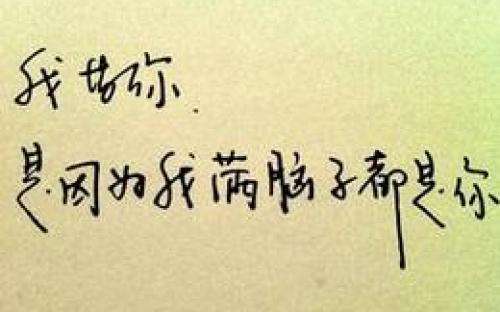 我若你.
是因为我满脑子都是你